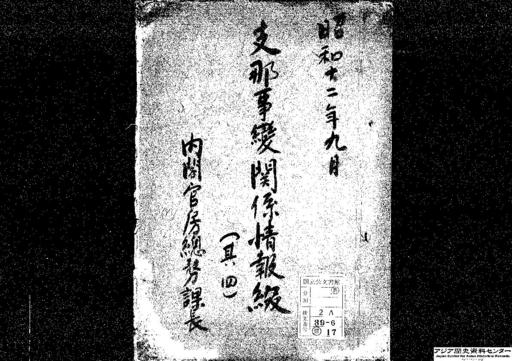 昭和十二年九月
支那事變関係情報綴
(其四)
内閣官房總務課長
国立公文書館
2A
39-6
17
アジア歴史資料センター
Japan Center for Asian Historical Records